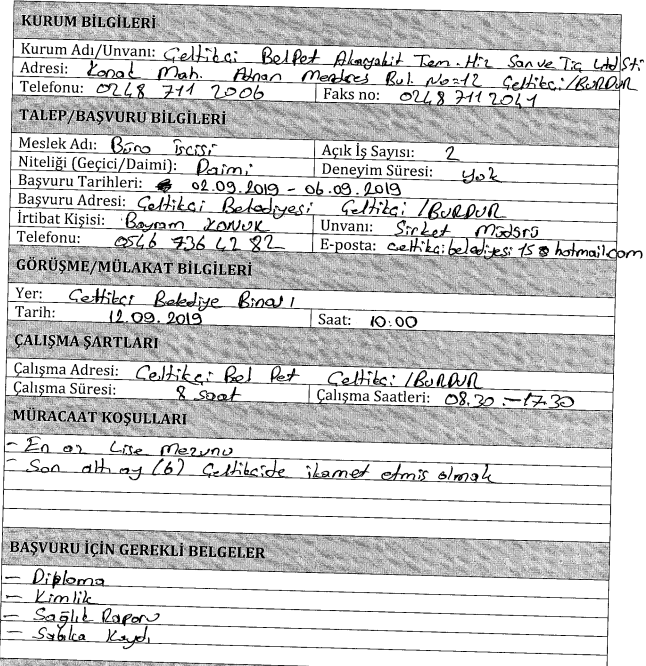 KURUM BİLGİLERİ
Kurum Adı/Unvanı: Çeltikçi BelPet Akaryakıt Tem. Hiz San ve Tic Ltd Şti
Adresi: Konak Mah. Adnan Menderes Bul. No=12 Çeltikçi/BURDUR
Telefonu: 0248 711 2006 Faks no: 0248 711 2041
TALEP/BAŞVURU BİLGİLERİ
Meslek Adı: Büro işçisi Açık İş Sayısı: 2
Niteliği (Geçici/Daimi): Daimi Deneyim Süresi: yok
Başvuru Tarihleri: 02.09.2019 - 06.09.2019
Başvuru Adresi: Çeltikçi Belediyesi Çeltikçi /BURDUR
İrtibat Kişisi: Bayram KONUK Unvanı: Şirket Müdürü
Telefonu: 0546 736 42 82 E-posta: celtikcibelediyesi15@hotmail.com
GÖRÜŞME/MÜLAKAT BİLGİLERİ
Yer: Çeltikçi Belediye Binası
Tarih: 12.09.2019 Saat: 10:00
ÇALIŞMA ŞARTLARI
Çalışma Adresi: Çeltikçi Bel Pet Çeltikçi /BURDUR
Çalışma Süresi: 8 saat Çalışma Saatleri: 08.30 - 17.30
MÜRACAAT KOŞULLARI
- En az Lise Mezunu
- Son altı ay (6) Çeltikcide ikamet etmiş olmak
BAŞVURU İÇİN GEREKLİ BELGELER
- Diploma
- Kimlik
- Sağlık Raporu
- Sabıka Kaydı